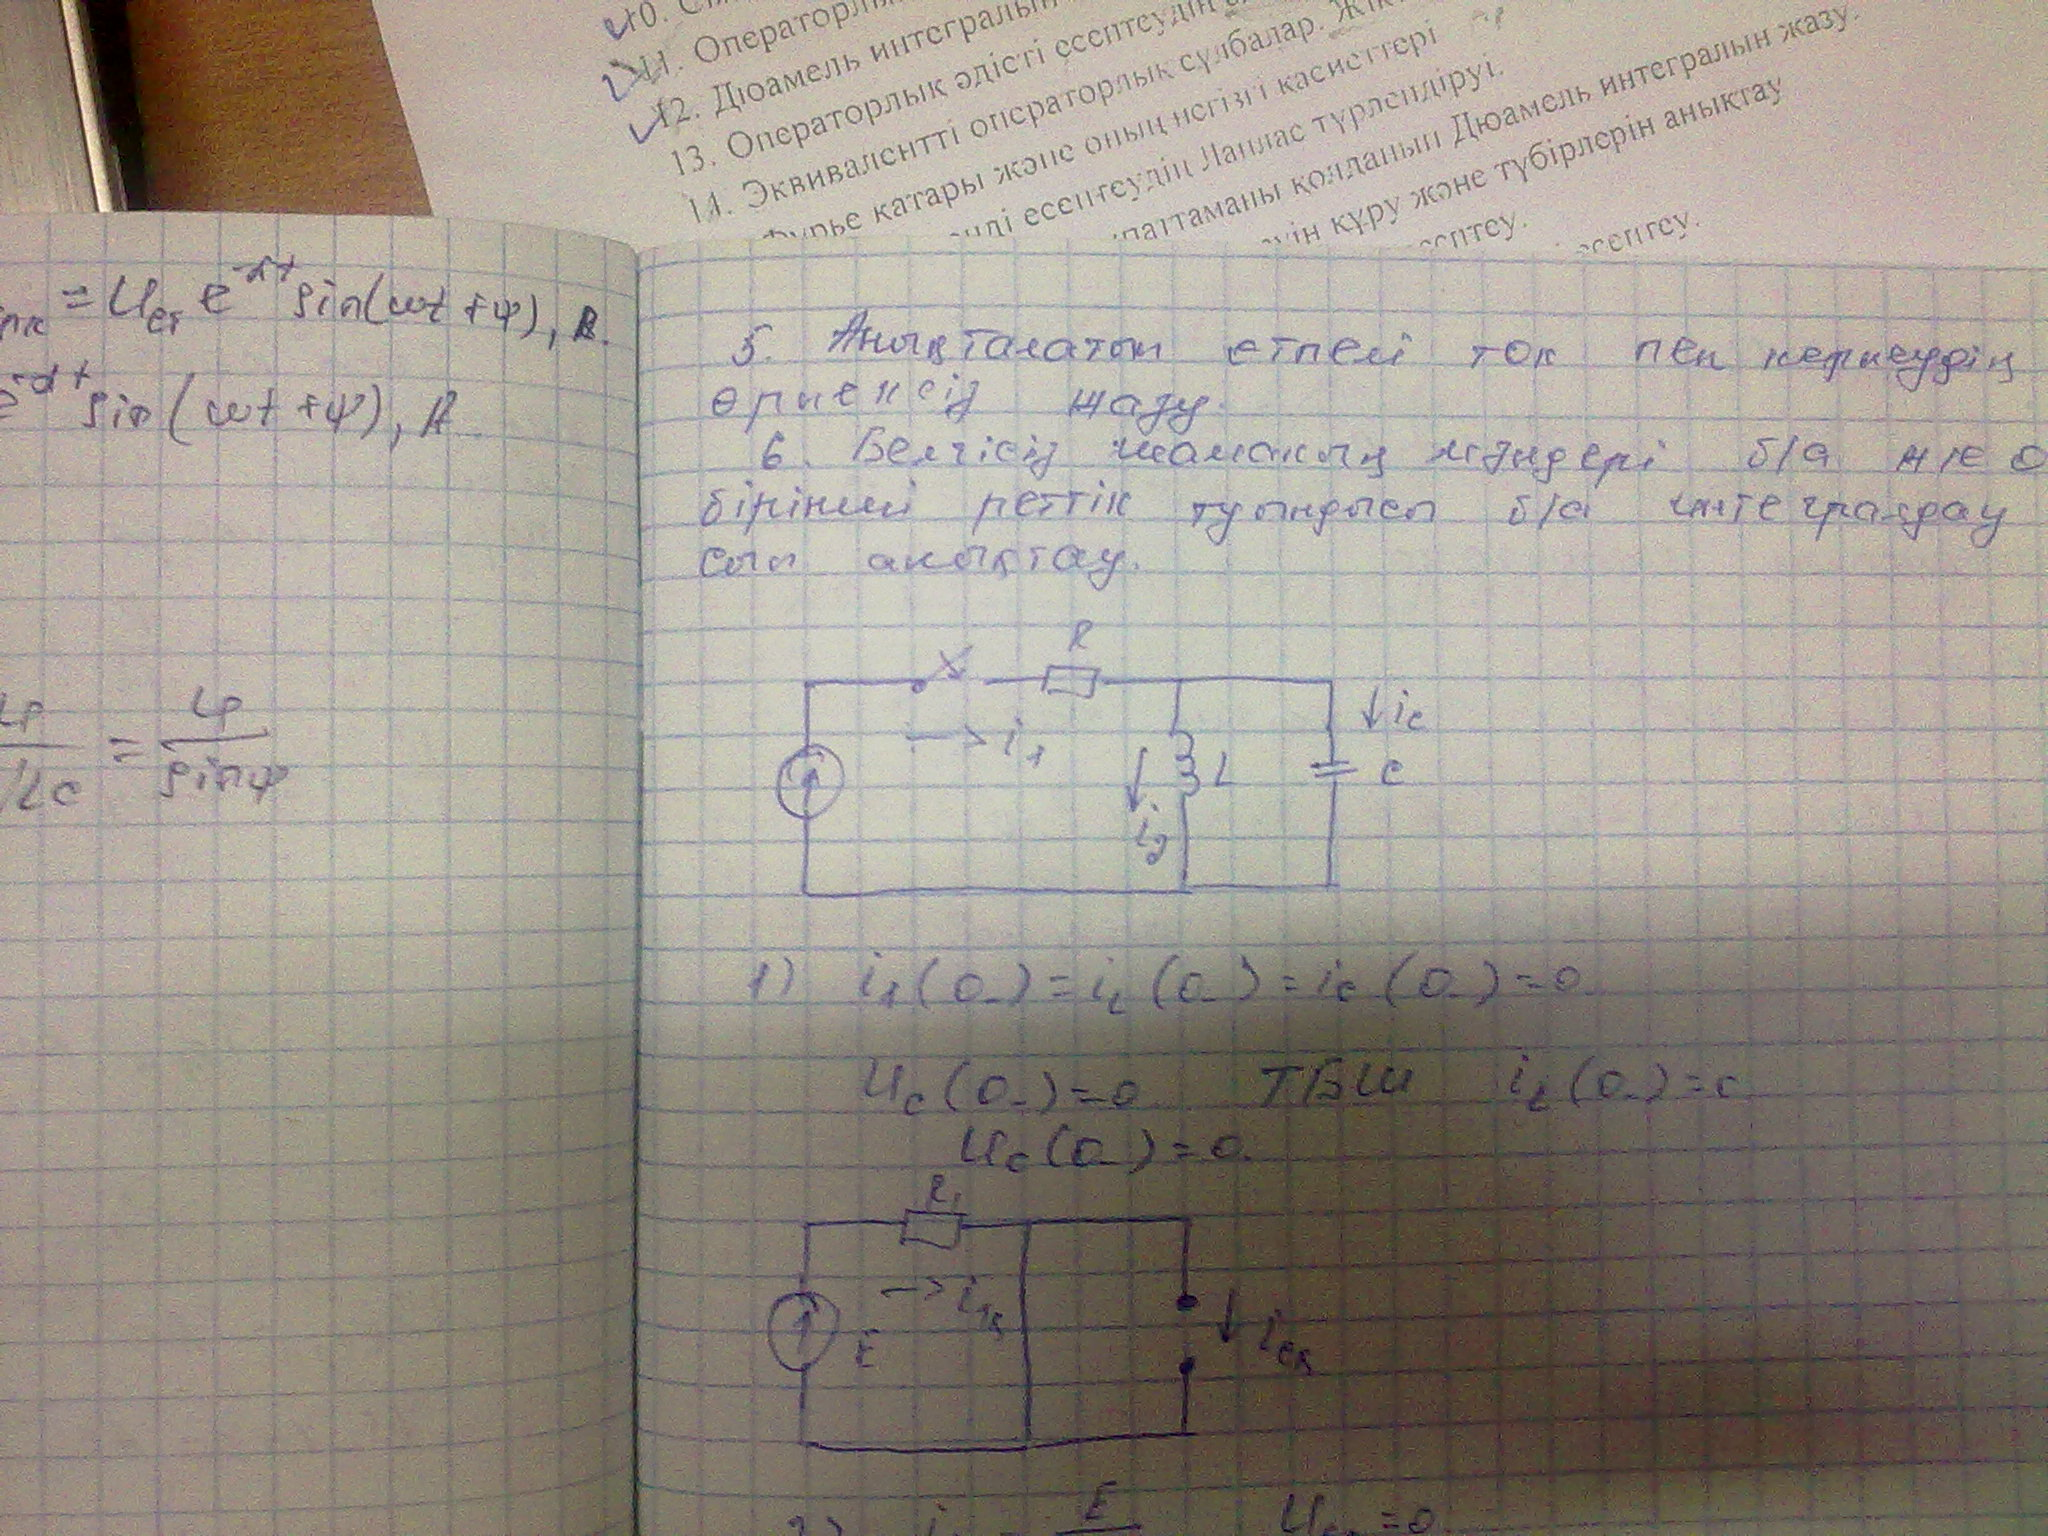 11. Операторлы
12. Дюамель интегралын
13. Операторлық әдісті есептеудің
14. Эквивалентті операторлық сұлбалар. Жік
Фурье қатары және оның негізгі қасиеттері
есептеудің Лаплас түрлендіруі.
қолданып Дюамель интегралын жазу.
құру және түбірлерін анықтау
есептеу.
есептеу.
= Uст e^-αt sin(ωt + ψ), A.
e^-αt sin(ωt + ψ), A
= / sinψ
5. Анықталатын етпелі ток пен кернеудің
өрнексіз жазу.
6. Белгісіз шаманың мәндері б/а н/е о
бірінші реттік туындысы б/а интегралдау
сын анықтау.
R
i1
iC
L
C
i2
1) i1(0-) = iL(0-) = iC(0-) = 0
UC(0-) = 0 ТБШ iL(0-) = 0
UC(0-) = 0.
R1
i1қ
E
iCқ
2) i = E
= 0